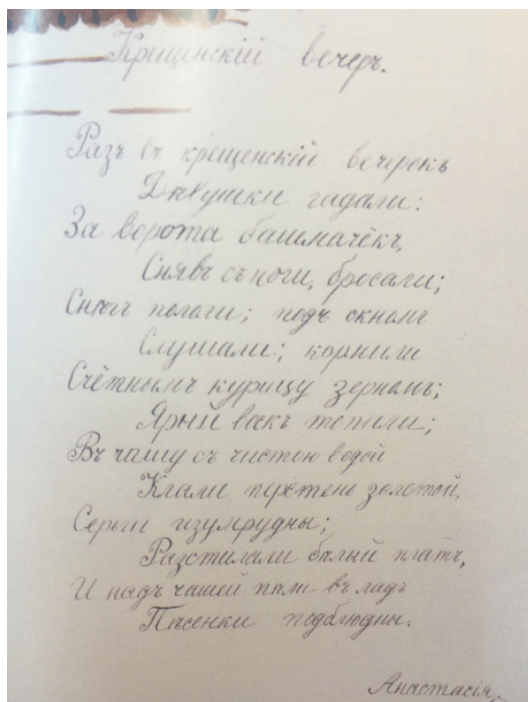 Крещенскій вечеръ.
Разъ въ крещенскій вечерекъ
Дѣвушки гадали:
За ворота башмачёкъ,
Снявъ съ ноги, бросали;
Снѣгъ пололи; подъ окномъ
Слушали; кормили
Счётнымъ курицу зерномъ;
Ярый воскъ топили;
Въ чашу съ чистою водой
Клали перстень золотой,
Серьги изумрудны;
Разстилали бѣлый платъ,
И надъ чашей пѣли въ ладъ
Пѣсенки подблюдны.
Анастасія.